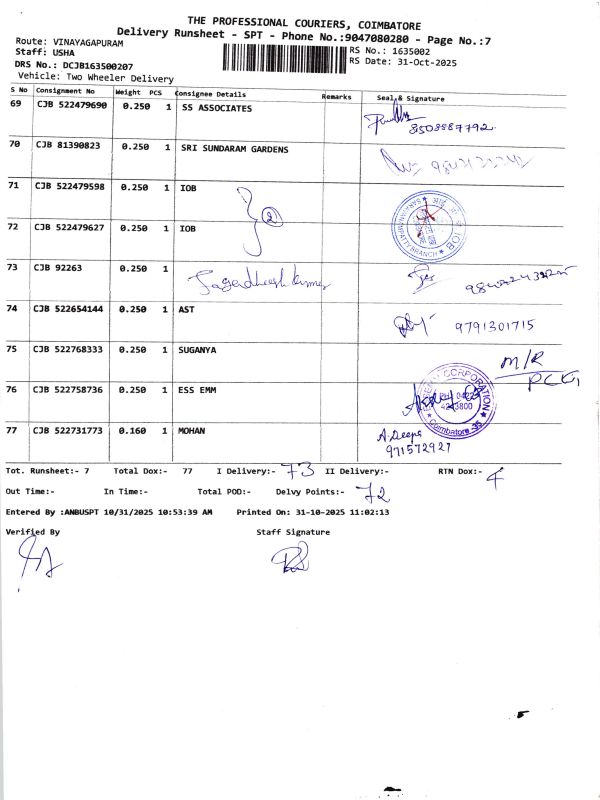 THE PROFESSIONAL COURIERS, COIMBATORE
Delivery Runsheet - SPT - Phone No.:9047080280 - Page No.:7
Route: VINAYAGAPURAM
Staff: USHA
RS No.: 1635002
DRS No.: DCJB163500207
RS Date: 31-Oct-2025
Vehicle: Two Wheeler Delivery
S No Consignment No Weight PCS Consignee Details Remarks Seal & Signature
69 CJB 522479690 0.250 1 SS ASSOCIATES
8508887792
70 CJB 81390823 0.250 1 SRI SUNDARAM GARDENS
71 CJB 522479598 0.250 1 IOB
2
72 CJB 522479627 0.250 1 IOB
SARAVANAMPATTY BRANCH ★ IOB
73 CJB 92263 0.250 1
Jagadheesh kumar
74 CJB 522654144 0.250 1 AST
9791301715
75 CJB 522768333 0.250 1 SUGANYA
M/R
PCG
76 CJB 522758736 0.250 1 ESS EMM
CORPORATION
★ Coimbatore -35 ★
77 CJB 522731773 0.160 1 MOHAN
A. Deepa
971572927
Tot. Runsheet:- 7 Total Dox:- 77 I Delivery:- 73 II Delivery:- RTN Dox:- 4
Out Time:- In Time:- Total POD:- Delvy Points:- 72
Entered By :ANBUSPT 10/31/2025 10:53:39 AM Printed On: 31-10-2025 11:02:13
Verified By Staff Signature